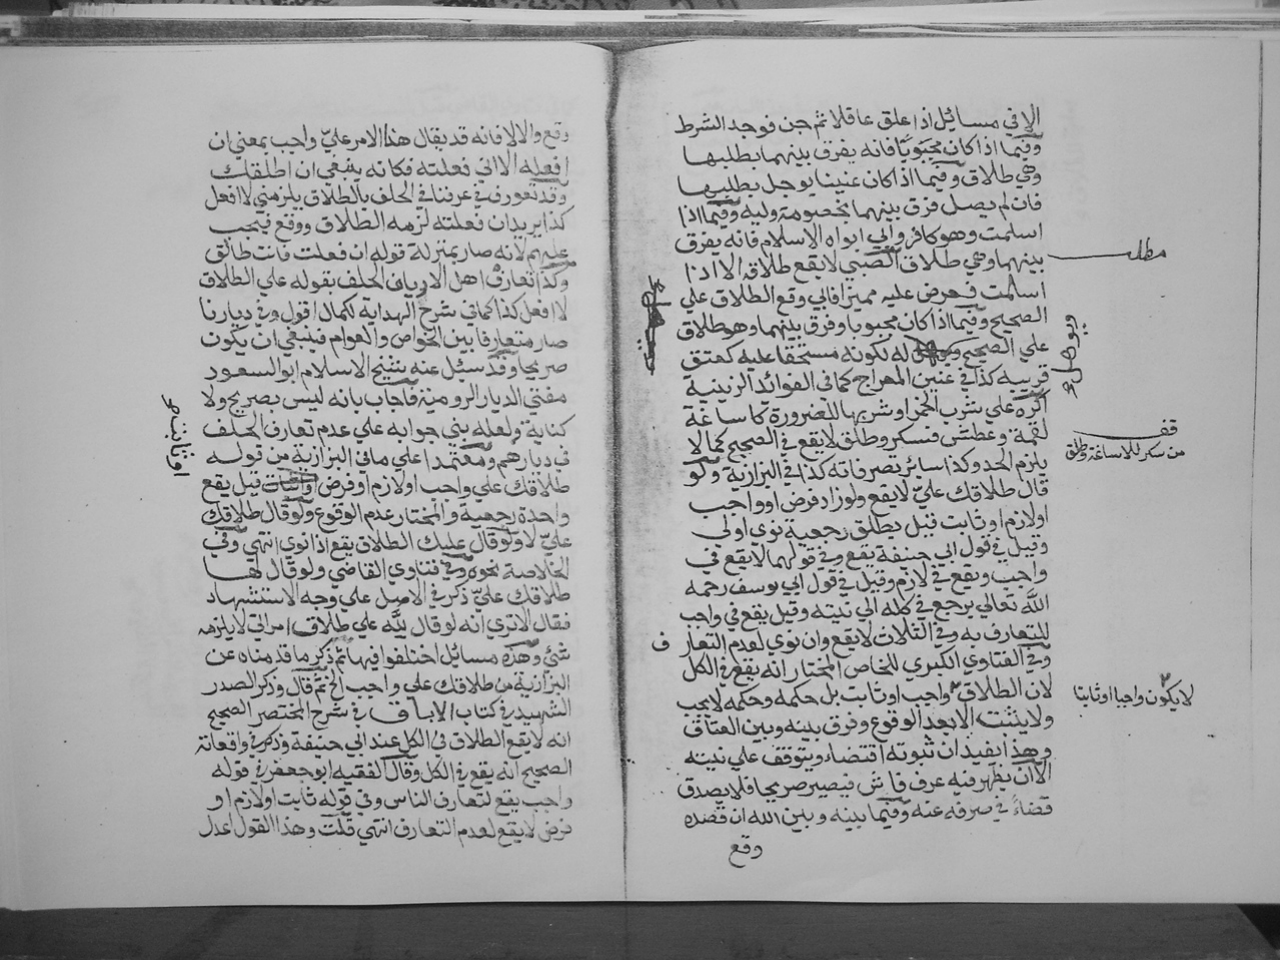 الا في مسائل اذا علق عاقلا ثم جن فوجد الشرط
وفيما اذا كان مجبوبا فانه يفرق بينهما بطلبها
وهي طلاق وفيما اذا كان عنينا يوجل بطلبها
فان لم يصل فرق بينهما بخصومة وليه وفيما اذا
اسلمت وهو كافر وابي ابواه الاسلام فانه يفرق
بينهما وهي طلاق الصبي لا يقع طلاقه الا اذا
مطلب
اسلمت فعرض عليه مميزا فابي وقع الطلاق علي
الصحيح وفيما اذا كان مجبوبا وفرق بينهما وهو طلاق
علي الصحيح له لكونه مستحقا عليه كعتق
ويوهل
قريبه كذا في عنين المعراج كما في الفوائد الزينية
اكره علي شرب الخمر او شربها للضرورة كاساغة
لقمة وعطش فسكر وطلق لا يقع في الصحيح كما لا
قف
من سكر للاساغة وطلق
يلزم الحد وكذا سائر تصرفاته كذا في البزازية ولو
قال طلاقك علي لا يقع ولو زاد فرض او واجب
او لازم او ثابت قيل يطلق رجعية نوي اولي
وقيل في قول ابي حنيفة يقع وفي قولهما لا يقع في
واجب ويقع في لازم وقيل في قول ابي يوسف رحمه
الله تعالي يرجع في كله الي نيته وقيل يقع في واجب
للتعارف به وفي الثلاث لا يقع وان نوي لعدم التعارف
وفي الفتاوي الكبري للخاص المختار انه يقع في الكل
لان الطلاق واجب او ثابت بل حكمه وحكمه لا يجب
لا يكون واجبا او ثابتا
ولا يثبت الا بعد الوقوع وفرق بينه وبين العتاق
وهذا يفيد ان ثبوته اقتضاء ويتوقف علي نيته
الا ان يظهر فيه عرف فاش فيصير صريحا فلا يصدق
قضاءً في صرفه عنه وفيما بينه وبين الله ان قصده
وقع
وقع والا لا فانه قد يقال هذا الامر علي واجب بمعني ان
افعله الا اني فعلته فكانه ينبغي ان اطلقك
وقد تعورف في عرفنا في الحلف بالطلاق يلزمني لا افعل
كذا يريد ان فعلته لزمه الطلاق ووقع فيجب
عليهم لانه صار بمنزلة قوله ان فعلت فانت طالق
وكذا تعارف اهل الارياف الحلف بقوله علي الطلاق
لا افعل كذا كما في شرح الهداية لكمال اقول وفي ديارنا
صار متعارفا بين الخواص والعوام فينبغي ان يكون
صريحا وقد سئل عنه شيخ الاسلام ابو السعود
مفتي الديار الرومية فاجاب بانه ليس بصريح ولا
كناية ولعله بني جوابه علي عدم تعارف الحلف
في ديارهم ومعتمدا علي ما في البزازية من قوله
طلاقك علي واجب او لازم او فرض قيل يقع
او ثابت
واحدة رجعية والمختار عدم الوقوع ولو قال طلاقك
علي لا ولو قال عليك الطلاق يقع اذا نوي انتهي وفي
الخلاصة نحوه وفي فتاوي القاضي ولو قال لها
طلاقك علي ذكر في الاصل علي وجه الاستشهاد
فقال الا تري انه لو قال لله علي طلاق امراتي لا يلزمه
شئ وهذه مسائل اختلفوا فيها ثم ذكر ما قدمناه عن
البزازية من طلاقك علي واجب الخ ثم قال وذكر الصدر
الشهيد في كتاب الاباق في شرح المختصر الصحيح
انه لا يقع الطلاق في الكل عند ابي حنيفة وذكر في واقعاته
الصحيح انه يقع في الكل وقال الفقيه ابو جعفر في قوله
واجب يقع لتعارف الناس وفي قوله ثابت او لازم او
فرض لا يقع لعدم التعارف انتهي قلت وهذا القول اعدل